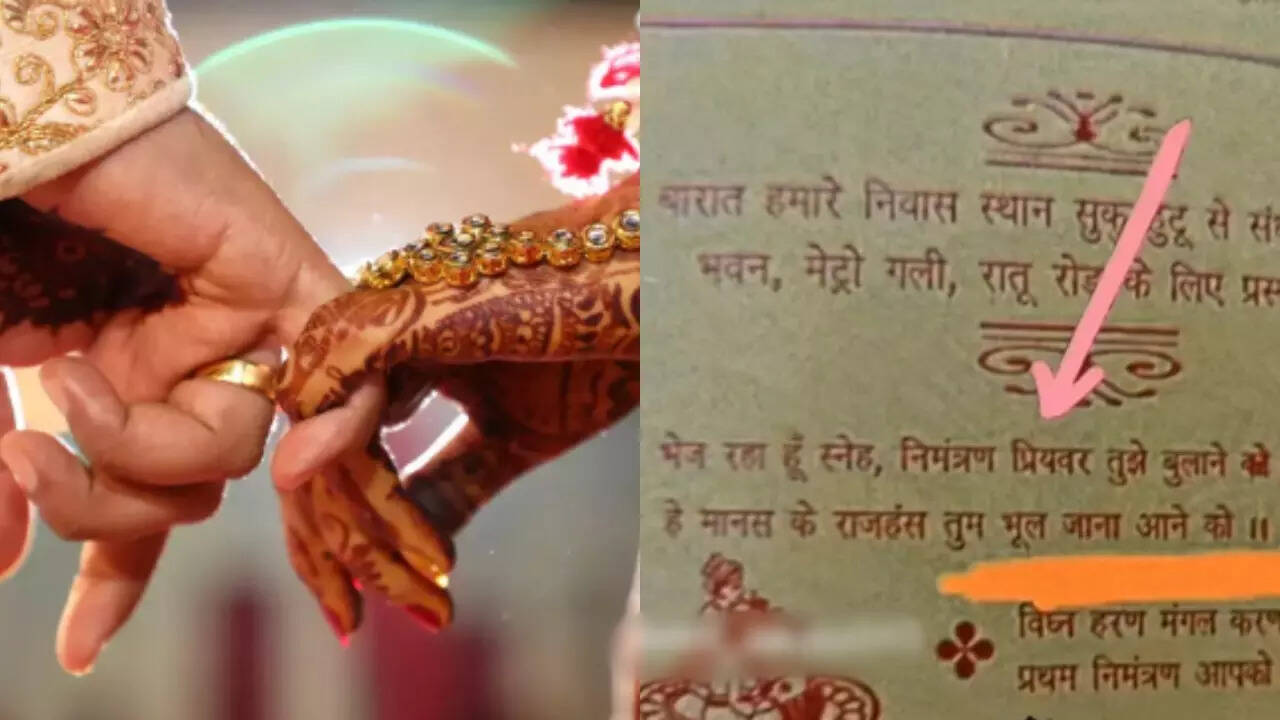 बारात हमारे निवास स्थान सुकुरहुटू से
भवन, मेट्रो गली, रातू रोड के लिए
भेज रहा हूँ स्नेह, निमंत्रण प्रियवर तुझे बुलाने को
हे मानस के राजहंस तुम भूल जाना आने को ॥
विघ्न हरण मंगल करण
प्रथम निमंत्रण आपको